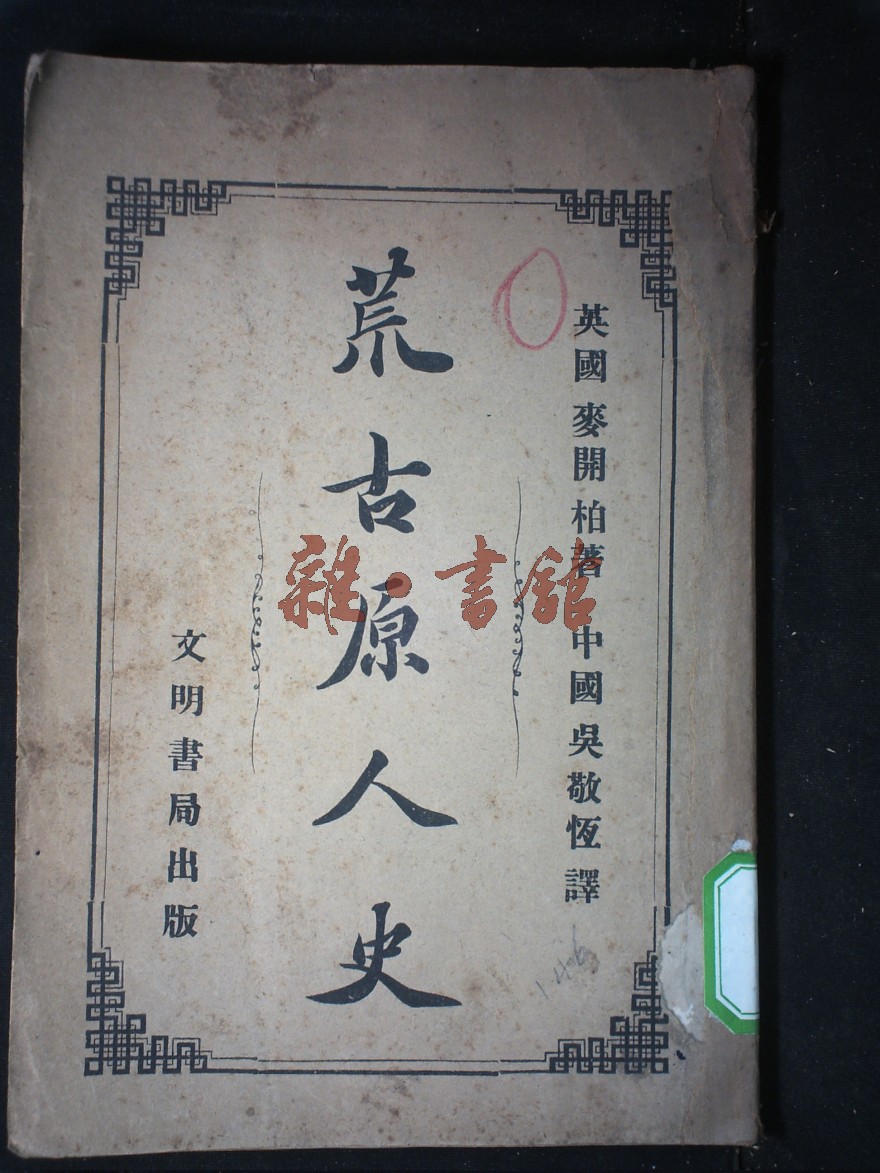 英國麥開柏著 中國吳敬恆譯
荒古原人史
文明書局出版
雜·書館
1.46